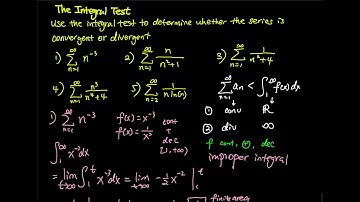 The Integral Test
Use the integral test to determine whether the series is
convergent or divergent
1) ∞∑n=1 n⁻³ 2) ∞∑n=1 n/(n²+1) 3) ∞∑n=1 1/(n²+4)
4) ∞∑n=1 n³/(n⁴+4) 5) ∞∑n=2 1/(n ln(n)) ∞∑n=1 an < ∫₁^∞ f(x)dx
① conv ℝ
② div ∞
f cont, ⊕, dec
improper integral
1) ∞∑n=1 n⁻³ f(x)=x⁻³ cont
f(x)=1/x³ + dec
[1,+∞)
∫₁^∞ x⁻³dx
= lim t→∞ ∫₁^t x⁻³dx = lim t→∞ -1/2 x⁻² |₁^t
finite area